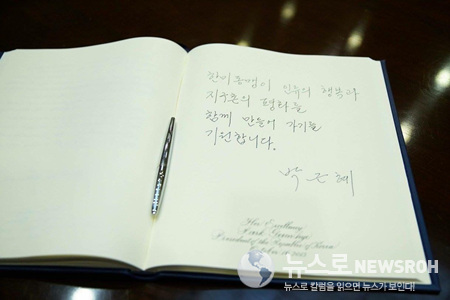 한미동맹이 인류의 행복과
지구촌의 평화를
함께 만들어 가기를
기원합니다.
박근혜
Her Excellency
Park Geun-hye
President of the Republic of Korea
뉴스로 NEWSROH
뉴스로 칼럼을 읽으면 뉴스가 보인다!